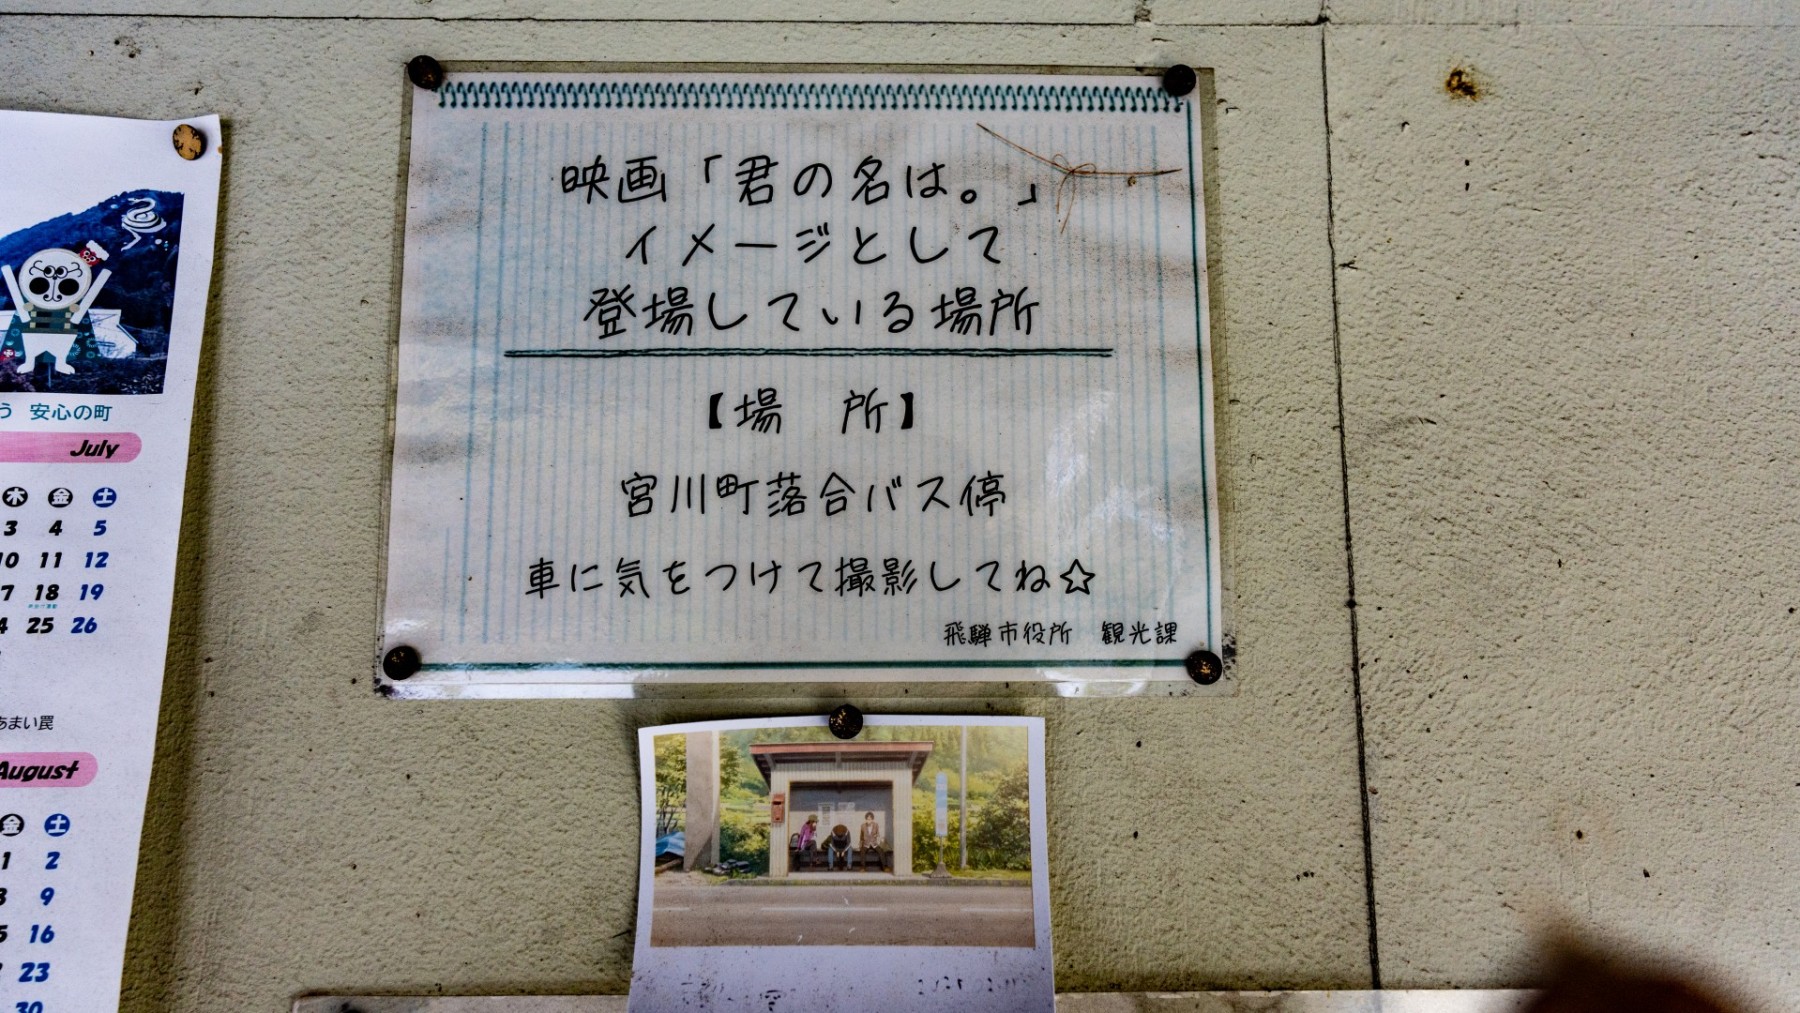 映画「君の名は。」
イメージとして
登場している場所
【場　所】
宮川町落合バス停
車に気をつけて撮影してね☆
飛騨市役所　観光課
う 安心の町
July
木 金 土
3 4 5
10 11 12
17 18 19
24 25 26
あまい罠
August
金 土
1 2
8 9
15 16
22 23
30